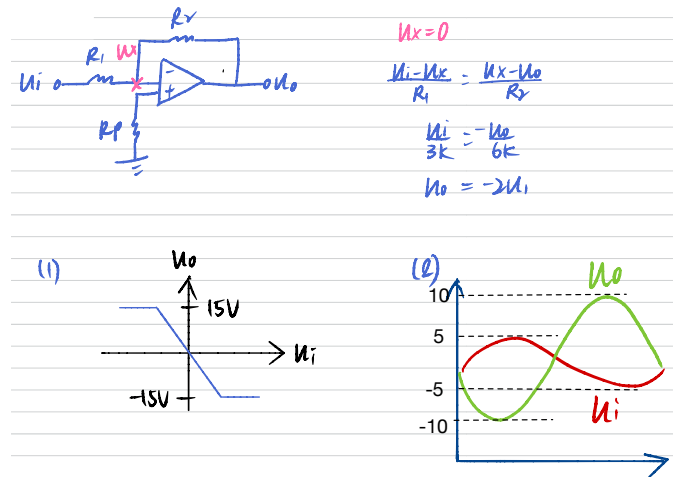 R2
R1 ux
ui uo
- +
RP
ux=0
ui-ux/R1 = ux-uo/R2
ui/3K = -uo/6K
uo = -2ui
(1)
uo
15V
ui
-15V
(2)
uo
10
5
-5
ui
-10